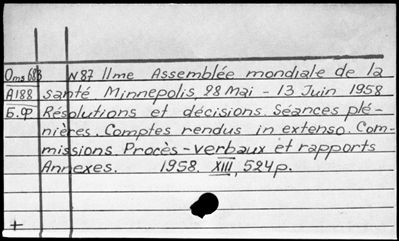 Oms 683 N87 IIme Assemblée mondiale de la
A188 santé Minnepolis 28 Mai - 13 Juin 1958
Б.Ф Résolutions et décisions. Séances plé-
nières. Comptes rendus in extenso. Com-
missions. Procès-verbaux et rapports
Annexes. 1958. XIII, 524p.
+